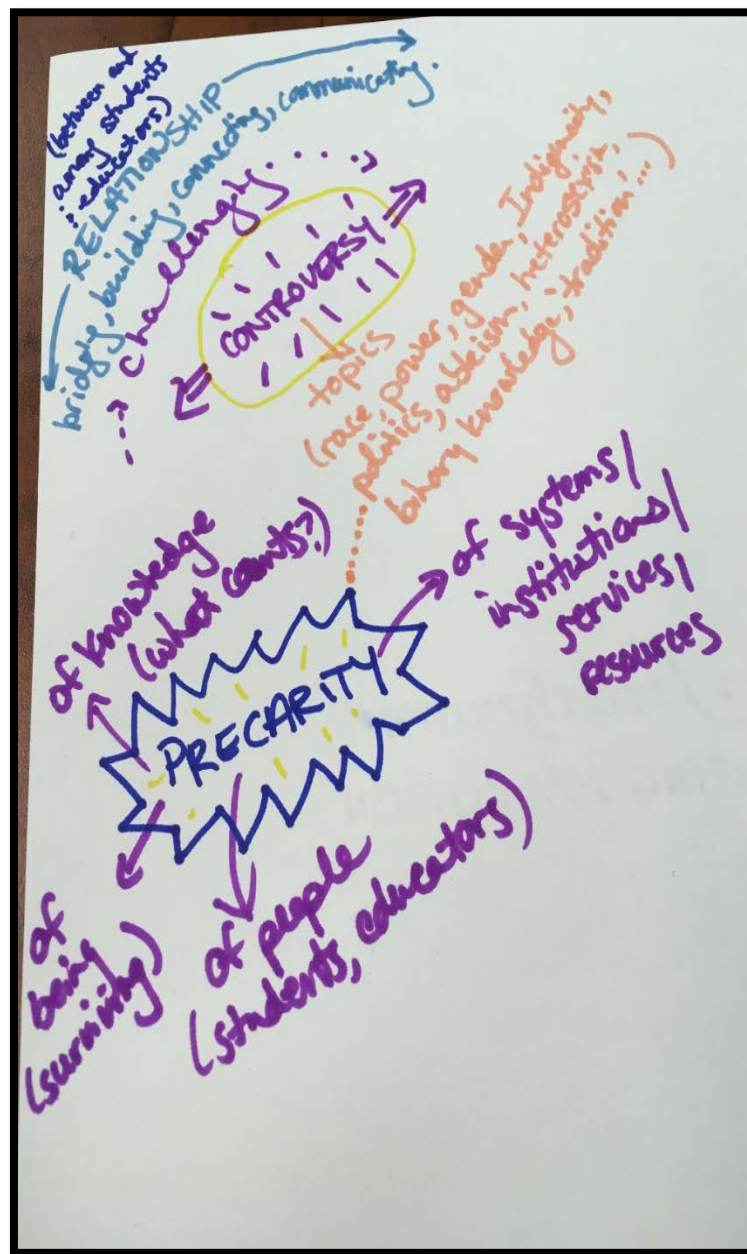 (between and
among students
: educators)
RELATIONSHIP
bridging, building, connecting, communicating.
challenging....
CONTROVERSY
topics
(race, power, gender, Indigeneity,
politics, ableism, heterosexism,
binary knowledge, tradition...)
of knowledge
(what counts?)
of systems/
institutions/
services/
resources
PRECARITY
of
being
(surviving)
of people
(students, educators)